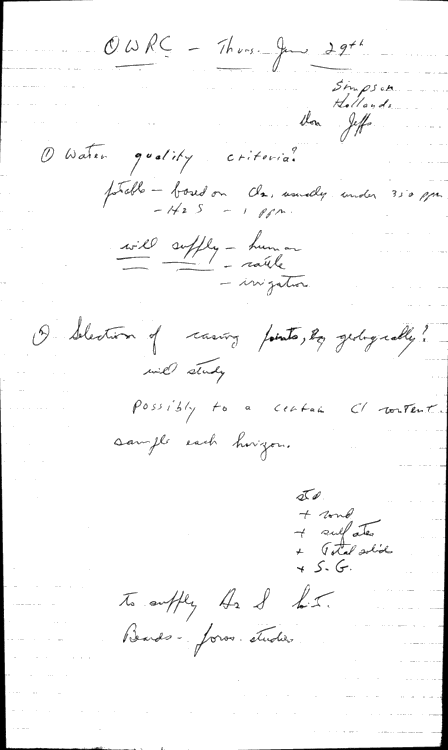 OWRC - Thurs. June 29th
Simpson
Hollands
Don Jeffs
① Water quality criteria?
potable - based on Cl2, usually under 350 ppm
- H2S - 1 ppm.
will supply - human
- cattle
- irrigation
② Selection of casing points, by geologically?
will study
Possibly to a certain Cl content.
sample each horizon.
std
+ cond
+ sulfates
+ Total solids
+ S.G.
to supply H2S
- form. studies